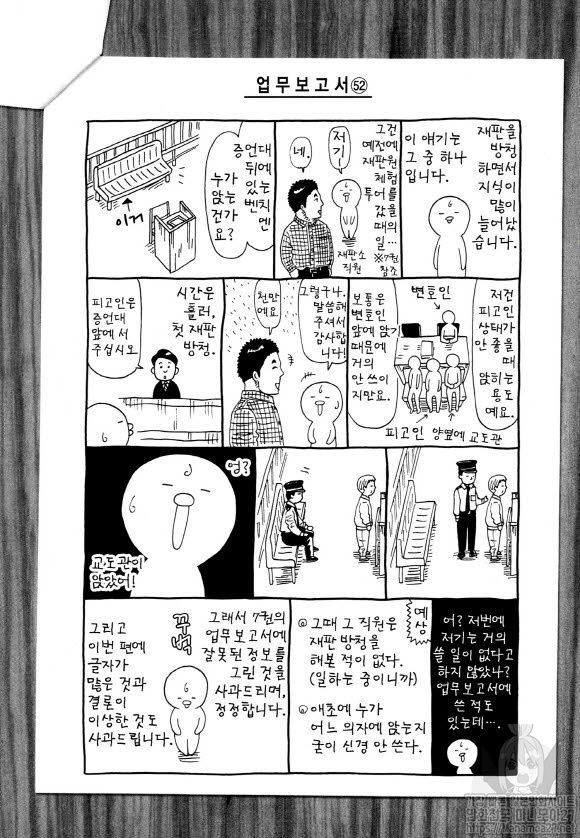 업무보고서 52
재판을
방청
하면서
지식이
많이
늘어났
습니다.
이 얘기는
그 중 하나
입니다.
그건
예전에
재판원
체험
투어를
갔을
때의
일…
※7권
참조
저기…
네.
재판소
직원
증언대
뒤에
있는
벤치엔
누가
앉는
건가
요?
이거
저건
피고인
상태가
안 좋을
때
앉히는
용도
예요.
변호인
피고인 양옆에 교도관
보통은
변호인
앞에 앉기
때문에
거의
안 쓰이
지만요.
그렇구나.
말씀해
주셔서
감사합
니다!
천만
에요
시간은
흘러,
첫 재판
방청.
피고인은
증언대
앞에 서
주십시오
엉?
교도관이
앉았어!
어? 저번에
저기는 거의
쓸 일이 없다고
하지 않았나?
업무보고서에
쓴 적도
있는데….
예상
@ 그때 그 직원은
재판 방청을
해본 적이 없다.
(일하는 중이니까)
@ 애초에 누가
어느 의자에 앉는지
굳이 신경 안 쓴다.
그래서 7권의
업무보고서에
잘못된 정보를
그린 것을
사과드리며,
정정합니다.
꾸벅
그리고
이번 편에
글자가
많은 것과
결론이
이상한 것도
사과드립니다.